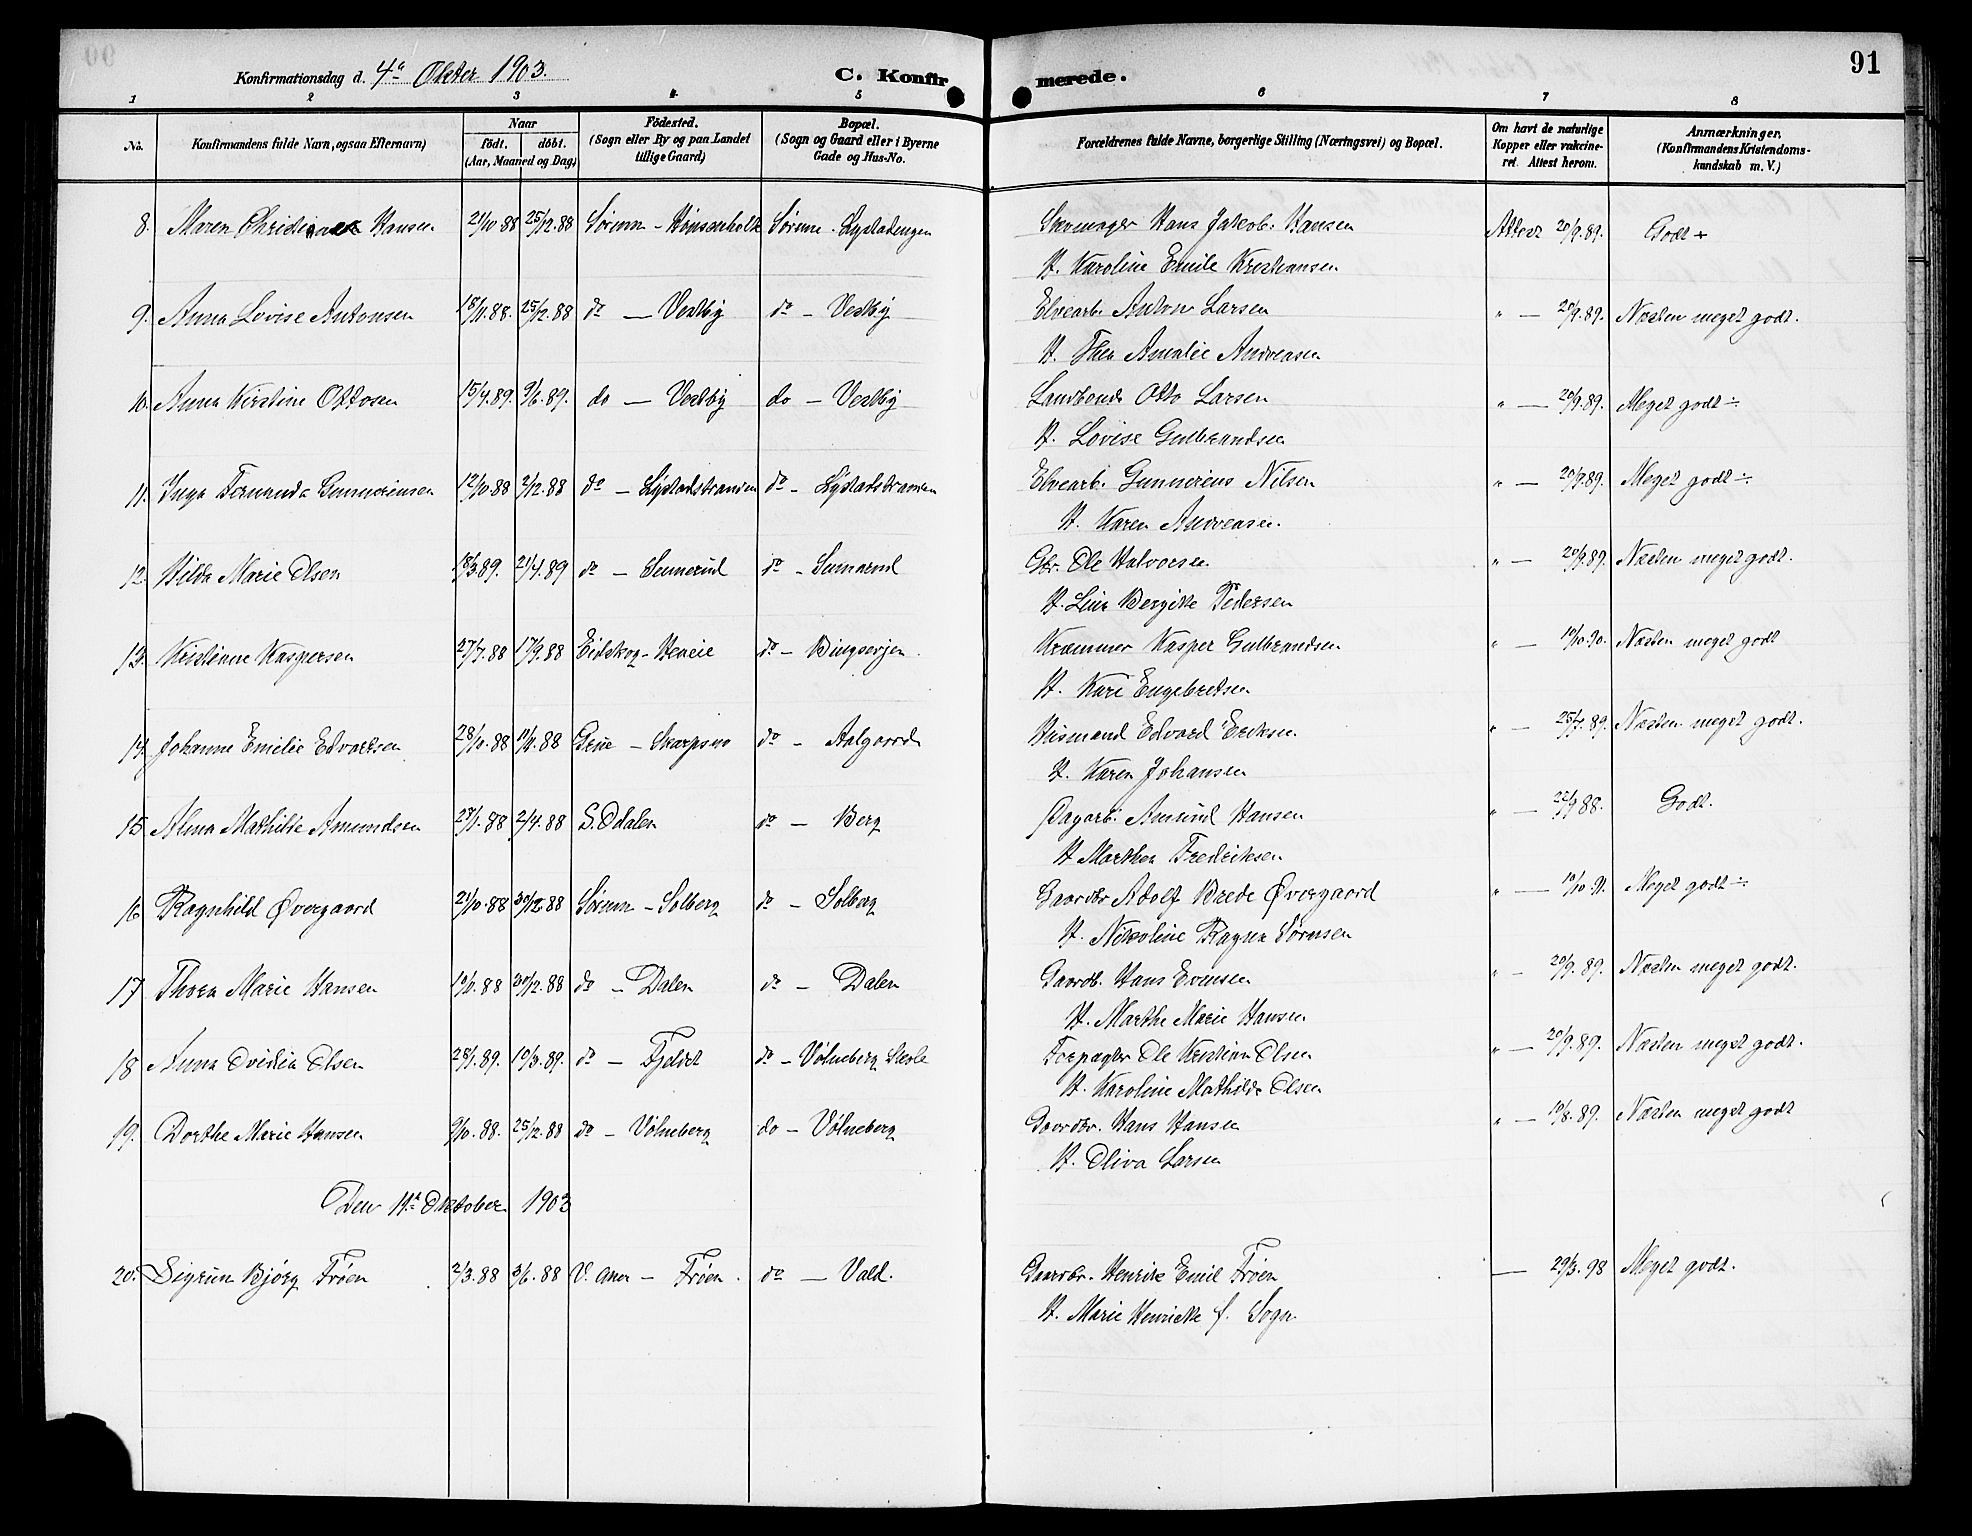 91
Konfirmationsdag d. 4de Okter 1903.
C. Konfirmerede.
1 2 3 4 5 6 7 8
No. Konfirmandens fulde Navn, ogsaa Efternavn) Naar födt. döbt. (Aar, Maaned og Dag) Födested. (Sogn eller By og paa Landet tillige Gaard) Bopæl. (Sogn og Gaard eller i Byerne Gade og Hus-No. Forældrenes fulde Navne, borgerlige Stilling (Næringsvei) og Bopæl. Om havt de naturlige Kopper eller vakcineret. Attest herom. Anmærkninger. (Konfirmandens Kristendomskundskab m. V.)
8. Maren Hansen 21/10.88 25/12.88 Sørum - Sørum - Skomager Hans Jakob Hansen Attest 20/9.89. Godt +
H. Karoline Emile Kristiansen
9. Anna Lovise Antonsen 18/11.88. 25/12.88 do — Vestby do - Vestby Elvearb. Anton Larsen " — 20/9.89. Næsten meget godt.
H. Thea Amalie Andreasen
10. Anna Kirstine Ottosen 15/4.89. 9/6.89. do — Vestby do — Vestby Otto Larsen " — 20/9.89. Meget godt ÷
H. Lovise Gulbrandsen
11. Inga Fernanda Gunneriusen 12/10.88 2/12.88 do — do - Elvearb. Gunnerius Nilsen " — 20/9.89. Meget godt ÷
H. Karen Andreasen.
12. Hilda Marie Olsen 18/3.89. 21/4.89 do — do - Gbr. Ole Halvorsen " — 20/9.89. Næsten meget godt.
H. Lina Bergitte Pedersen
13. Kristiane Kaspersen 27/7.88 17/9.88 Eidskog - do - Kræmmer Kasper Gulbrandsen " — 10/10.90. Næsten meget godt
H. Kari Engebretsen
14. Johanne Emilie Edvartsen 28/10.88 88 Grue — Skarpsno do - Aalgaard Husmand Edvard Eriksen " — 25/7.89. Næsten meget godt.
H. Karen Johansen
15. Alma Mathilde Amundsen 88 2/4.88 S. Odalen do — Berg Dagarb. Amund Hansen " — 22/9.88. Godt.
H Marthea Fredriksen
16. Ragnhild Øvergaard 21/10.88 30/12.88 Sørum — Solberg do — Solberg Gaardbr Adolf Brede Øvergaard " — 10/10.91. Meget godt ÷
H. Nikoline Ragna Sørnsen
17. Thora Marie Hansen 88 30/12.88 do — Dalen do — Dalen Gaardb. Hans Evensen " — 20/9.89. Næsten meget godt.
H. Marthe Marie Hansen
18. Anna Ovidia Olsen 28/1.89. 10/3.89. do — Fjeldet do - Völneberg Skole Forpagter Ole Kristian Olsen " — 20/9.89. Næsten meget godt.
H. Karoline Mathilde Olsen
19. Dorthe Marie Hansen 9/10.88. 25/12.88 do — Völneberg do — Völneberg Gaardbr. Hans Hansen " — 10/8.89. Næsten meget godt
H. Oliva Larsen
Den 11te Oktober 1903
20. Sigrun Bjørg Frøen 2/3.88 3/6.88 V. Aker — Frøen. do — Vald. Gaardbr. Henrik Emil Frøen — 29/3.98 Meget godt.
H. Marie Henrikke f. Sogn